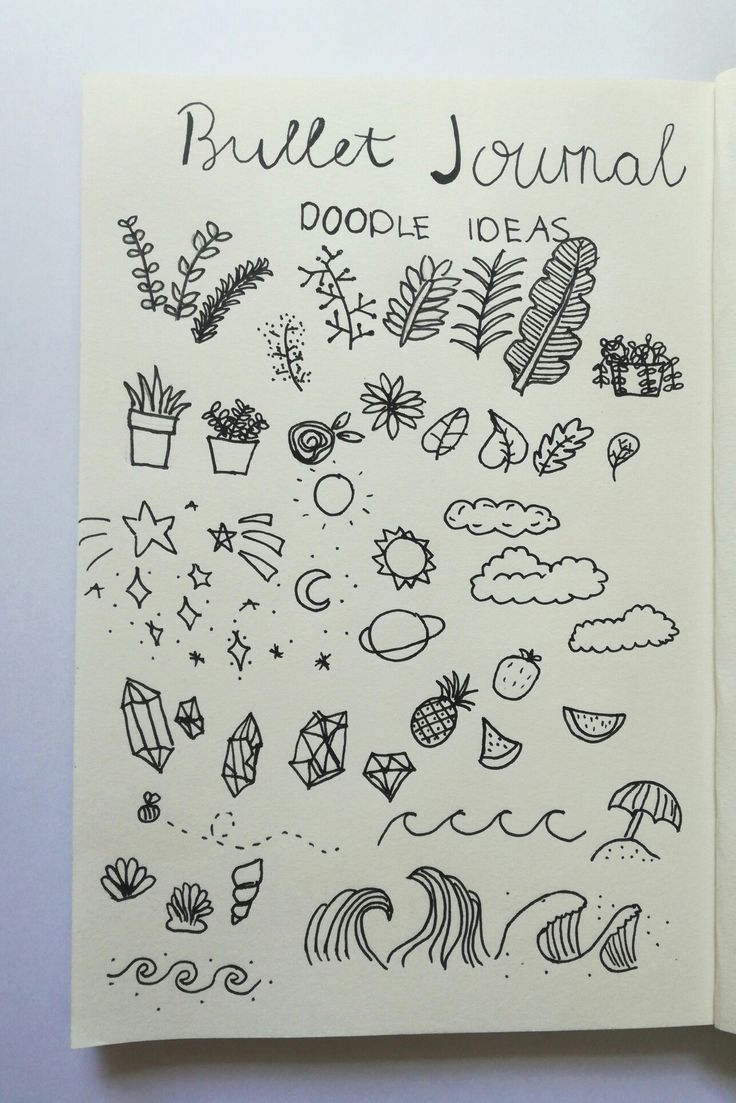 Bullet Journal
DOODLE IDEAS